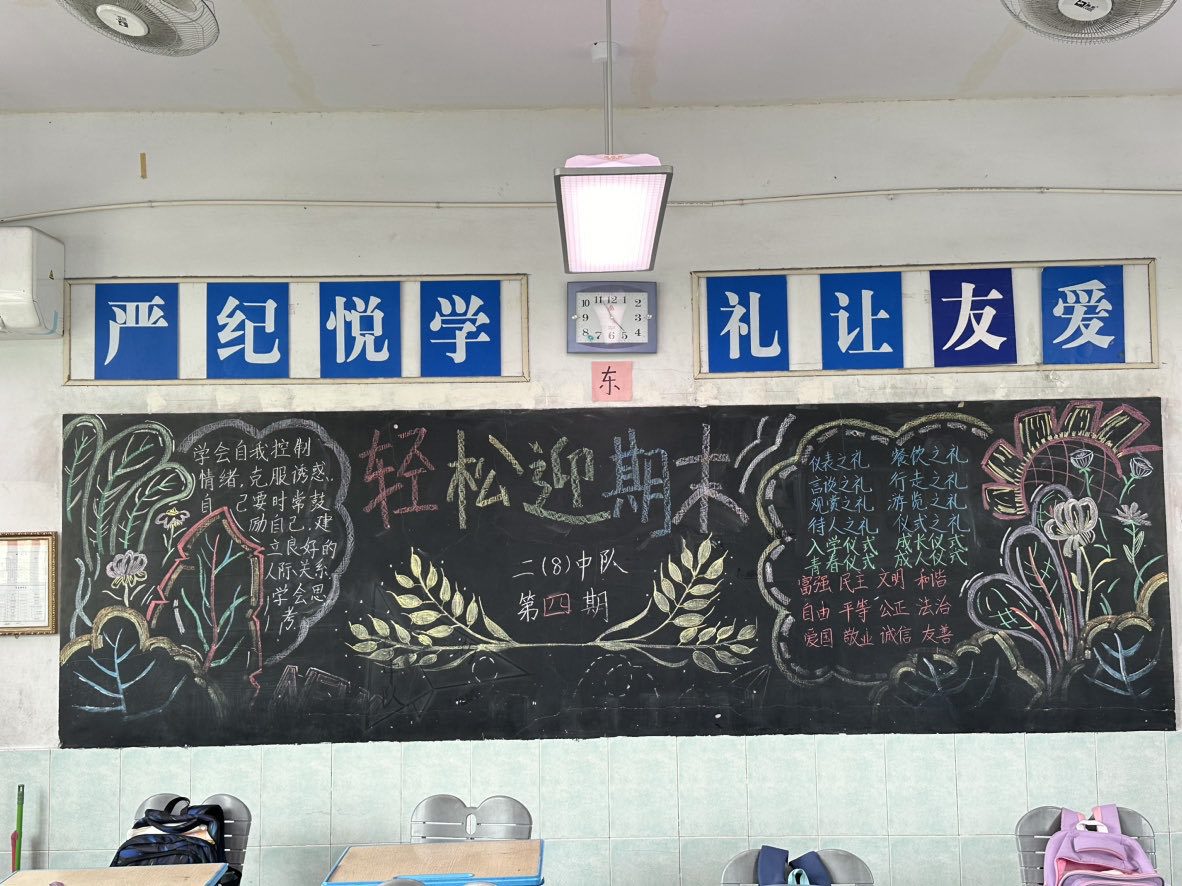 严纪悦学
礼让友爱
10 11 12 1
9 2
8 3
7 6 5 4
东
学会自我控制
情绪,克服诱惑.
自己要时常鼓
励自己.建
立良好的
人际关系
学会思
考
轻松迎期末
二(8)中队
第四期
仪表之礼 餐饮之礼
言谈之礼 行走之礼
观赏之礼 游览之礼
待人之礼 仪式之礼
入学仪式 成长仪式
青春仪式 成人仪式
富强 民主 文明 和谐
自由 平等 公正 法治
爱国 敬业 诚信 友善